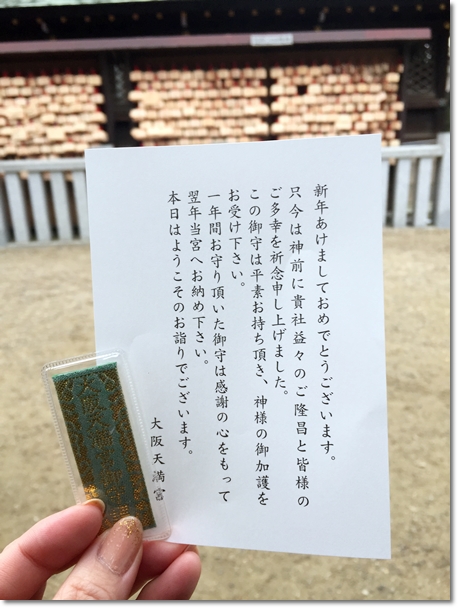 新年あけましておめでとうございます。
只今は神前に貴社益々のご隆昌と皆様の
ご多幸を祈念申し上げました。
この御守は平素お持ち頂き、神様の御加護を
お受け下さい。
一年間お守り頂いた御守は感謝の心をもって
翌年当宮へお納め下さい。
本日はようこそのお詣りでございます。
大阪天満宮
大阪天満宮御守護